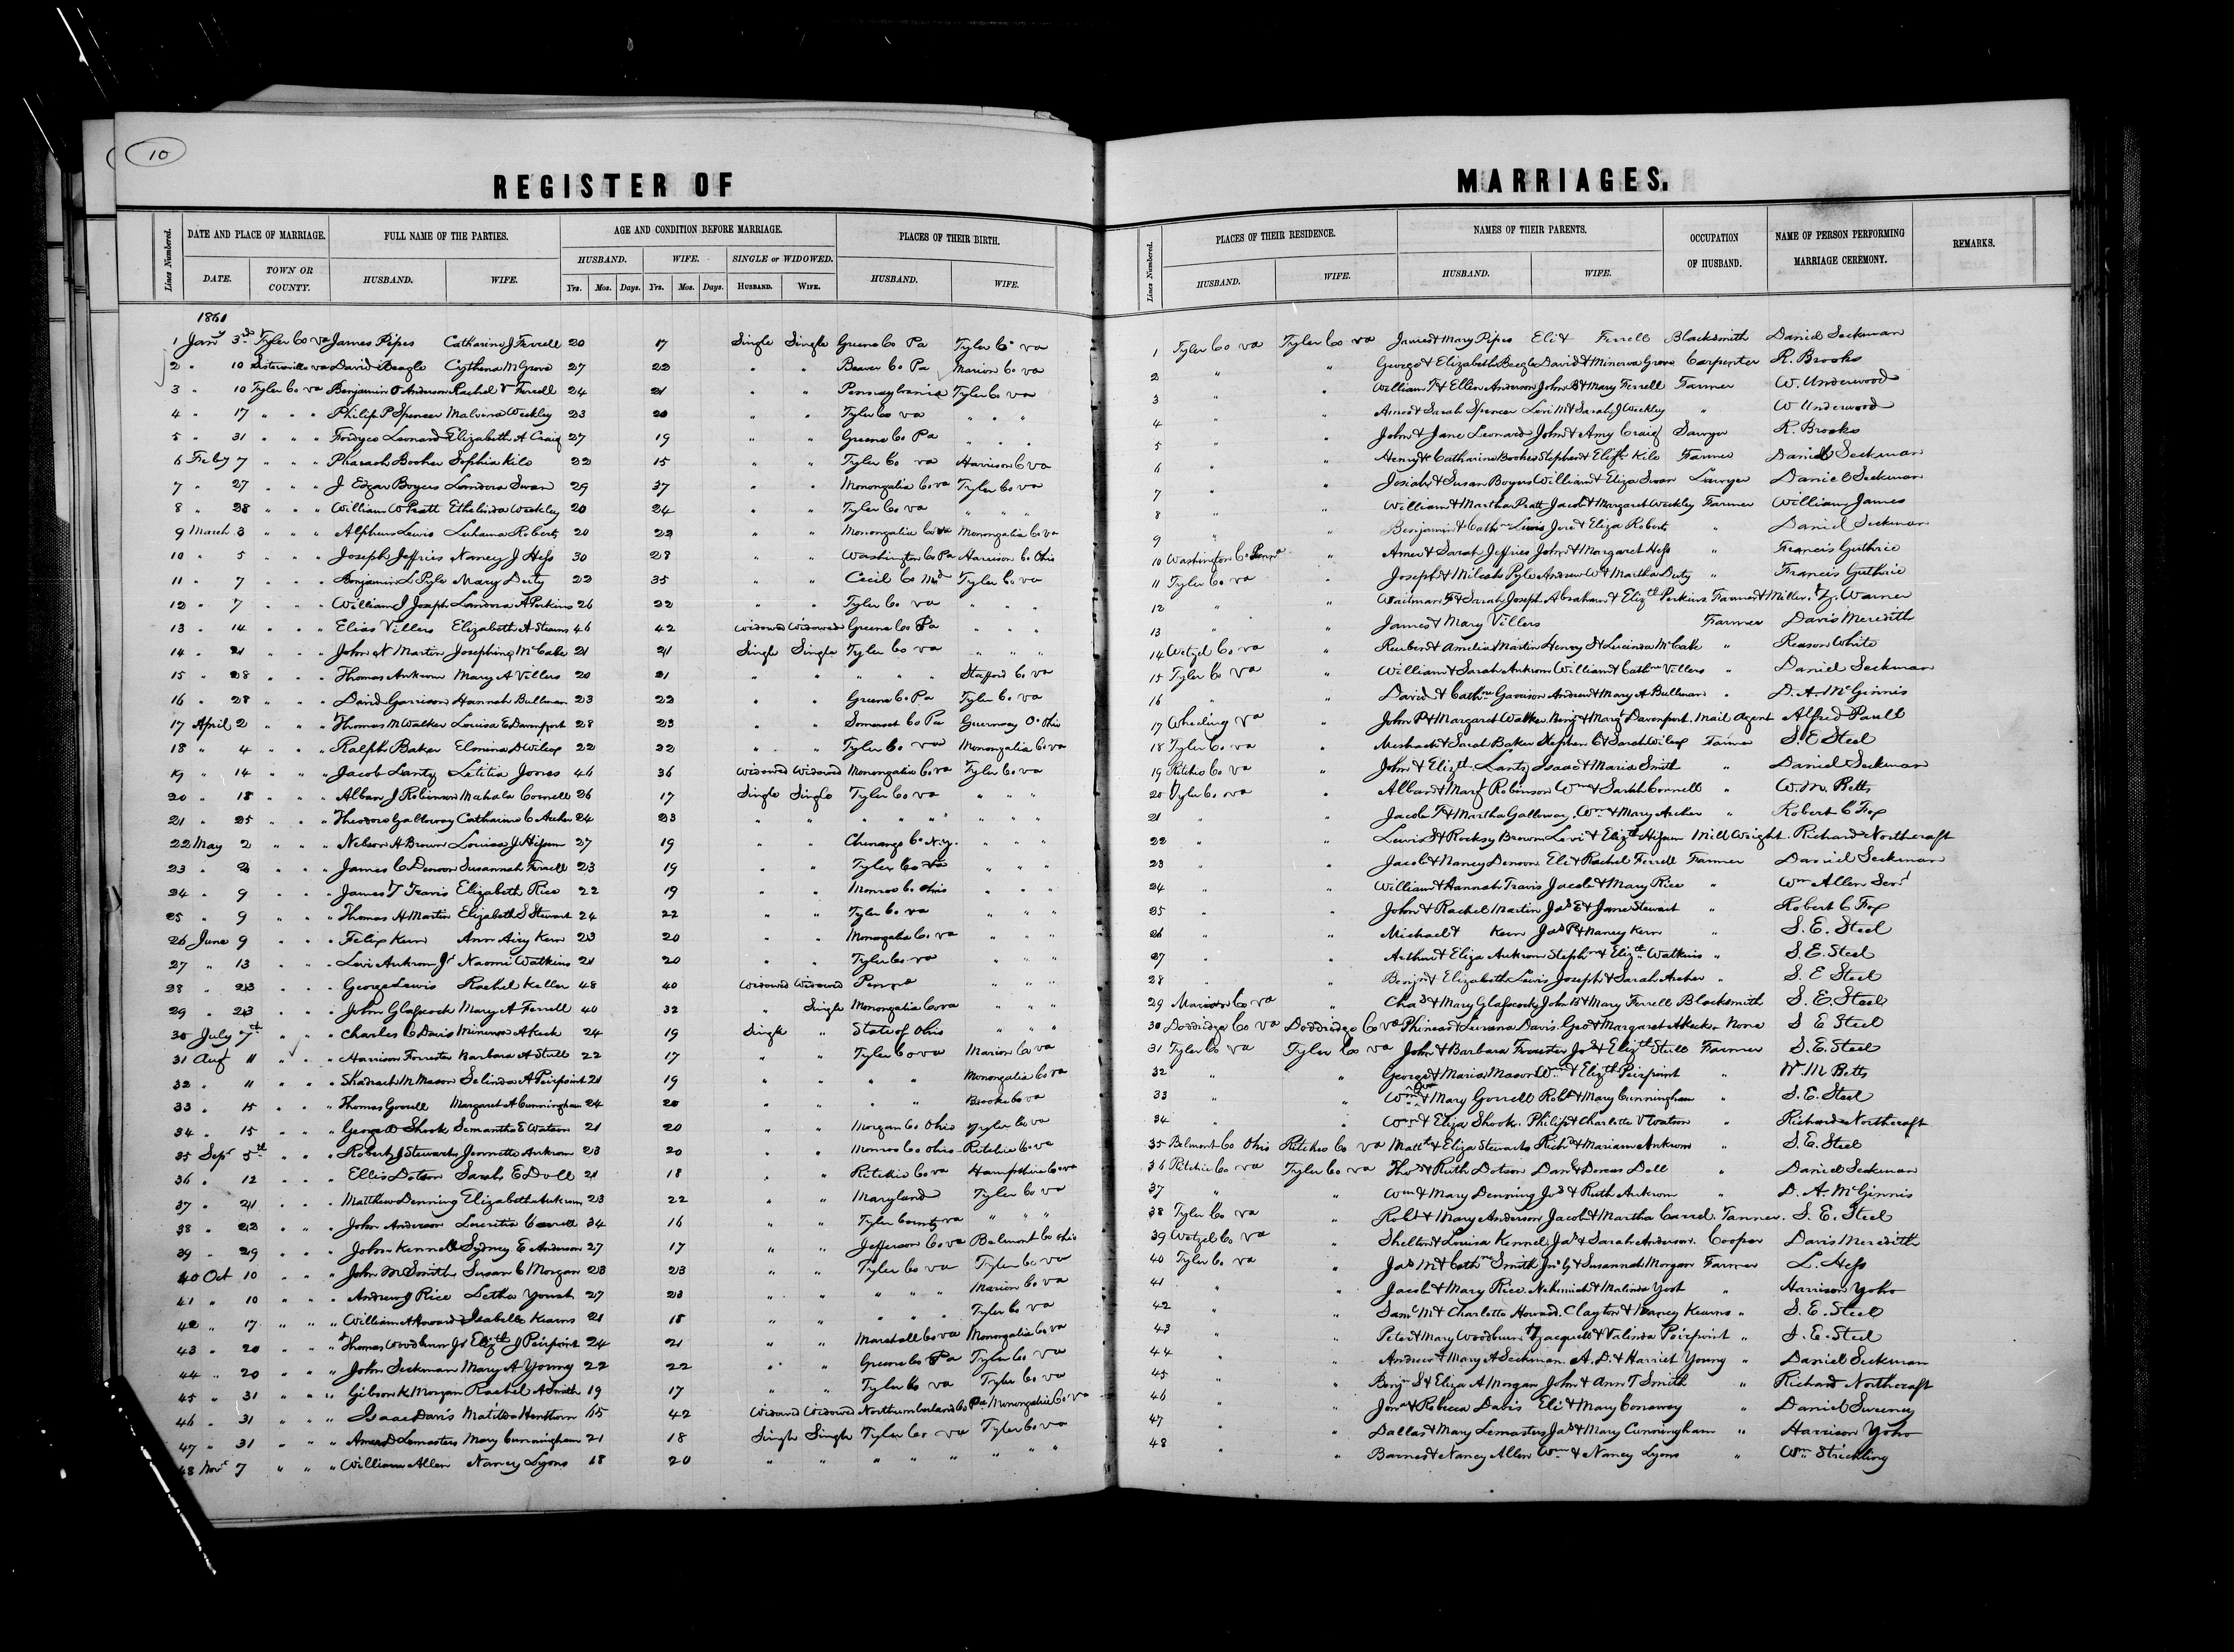 10
REGISTER OF
MARRIAGES.
Lines Numbered. DATE AND PLACE OF MARRIAGE. FULL NAME OF THE PARTIES. AGE AND CONDITION BEFORE MARRIAGE. PLACES OF THEIR BIRTH.
HUSBAND. WIFE. SINGLE or WIDOWED.
DATE. TOWN OR COUNTY. HUSBAND. WIFE. Yrs. Mos. Days. Yrs. Mos. Days. HUSBAND. WIFE. HUSBAND. WIFE.
1861
1 Jany 3rd Tyler Co va James Pipes Catharine J Ferrell 20 17 Single Single Greene Co Pa Tyler Co va
2 " 10 Sistersville va David Beagle Cythena M Grove 27 22 " " Beaver Co Pa Marion Co va
3 " 10 Tyler Co va Benjamin O Anderson Rachel V Ferrell 24 21 " " Pennsylvania Tyler Co va
4 " 17 " " " Philip P Spencer Malvina Weekley 23 20 " " Tyler Co va " " "
5 " 31 " " " Fordyce Leonard Elizabeth A Craig 27 19 " " Greene Co Pa " " "
6 Feby 7 " " " Pharaoh Booher Sophia Kile 22 15 " " Tyler Co va Harrison Co va
7 " 27 " " " J Edgar Boyers Landora Swan 29 37 " " Monongalia Co va Tyler Co va
8 " 28 " " " William W Pratt Ethelinda Weekley 20 24 " " Tyler Co va " " "
9 March 3 " " " Alpheus Lewis Luhama Roberts 20 22 " " Monongalia Co va Monongalia Co va
10 " 5 " " " Joseph Jeffries Nancy J Hess 30 28 " " Washington Co Pa Harrison Co Ohio
11 " 7 " " " Benjamin L Pyle Mary Duty 22 35 " " Cecil Co Md Tyler Co va
12 " 7 " " " William J Joseph Landora A Perkins 26 22 " " Tyler Co va " " "
13 " 14 " " " Elias Villers Elizabeth A Stearns 46 42 Widowed Widowed Greene Co Pa " " "
14 " 21 " " " John N Martin Josephine McCabe 21 21 Single Single Tyler Co va " " "
15 " 28 " " " Thomas Ankrom Mary A Villers 20 21 " " " " " Stafford Co va
16 " 28 " " " David Garrison Hannah Bullman 23 22 " " Greene Co Pa Tyler Co va
17 April 2 " " " Thomas M Walker Louisa E Davenport 28 23 " " Somerset Co Pa Guernsey Co Ohio
18 " 4 " " " Ralph Baker Elmina D Wilcox 22 22 " " Tyler Co va Monongalia Co va
19 " 14 " " " Jacob Lantz Letitia Jones 46 36 Widowed Widowed Monongalia Co va Tyler Co va
20 " 18 " " " Alban J Robinson Mahala Cornell 26 17 Single Single Tyler Co va " " "
21 " 25 " " " Theodore Galloway Catharine C Archer 24 23 " " " " " " " "
22 May 2 " " " Nelson H Brown Louisa J Hissam 27 19 " " Chenango Co N.y. " " "
23 " 2 " " " James C Denoon Susannah Ferrell 23 19 " " Tyler Co va " " "
24 " 9 " " " James T Travis Elizabeth Rice 22 19 " " Monroe Co Ohio " " "
25 " 9 " " " Thomas H Martin Elizabeth S Stewart 24 22 " " Tyler Co va " " "
26 June 9 " " " Felix Kern Ann Airy Kern 23 20 " " Monongalia Co va " " "
27 " 13 " " " Levi Ankrom Jr Naomi Watkins 21 20 " " Tyler Co va " " "
28 " 23 " " " George Lewis Rachel Keller 48 40 Widowed Widowed Penna " " "
29 " 23 " " " John Glasscock Mary A Ferrell 40 32 " Single Monongalia Co va " " "
30 July 7th " " " Charles C Davis Minerva A Keck 24 19 Single " State of Ohio " " "
31 Aug 11 " " " Harrison Forrester Barbara A Stull 22 17 " " Tyler Co va Marion Co va
32 " 11 " " " Shadrach M Mason Selinda A Peirpoint 21 19 " " " " Monongalia Co va
33 " 15 " " " Thomas Gorrell Margaret A Cunningham 24 20 " " " " Brooke Co va
34 " 15 " " " George D Shook Semantha E Watson 21 20 " " Morgan Co Ohio Tyler Co va
35 Sept 5th " " " Robert J Stewart Jennette Ankrom 23 20 " " Monroe Co Ohio Ritchie Co va
36 " 12 " " " Ellis Dotson Sarah E Doll 21 18 " " Ritchie Co va Hampshire Co va
37 " 21 " " " Matthew Denning Elizabeth Ankrom 23 22 " " Maryland Tyler Co va
38 " 22 " " " John Anderson Lucretia Carrell 34 16 " " Tyler County va " " "
39 " 29 " " " John Kennell Sydney E Anderson 27 17 " " Jefferson Co va Belmont Co Ohio
40 Oct 10 " " " John M Smith Susan C Morgan 23 23 " " Tyler Co va Tyler Co va
41 " 10 " " " Andrew J Rice Letha Yoast 27 23 " " " " " Marion Co va
42 " 17 " " " William A Howard Isabelle Kearns 21 18 " " " " Tyler Co va
43 " 20 " " " Thomas Woodburn Jr Elizth J Peirpoint 24 21 " " Marshall Co va Monongalia Co va
44 " 20 " " " John Seckman Mary A Young 22 22 " " Greene Co Pa Tyler Co va
45 " 31 " " " Gibson K Morgan Rachel A Smith 19 17 " " Tyler Co va Tyler Co va
46 " 31 " " " Isaac Davis Matilda Henthorn 65 42 Widowed Widowed Northumberland Co Pa Monongalia Co va
47 " 31 " " " Amer D Lemasters Mary Cunningham 21 18 Single Single Tyler Co va Tyler Co va
48 Novr 7 " " " William Allen Nancy Lyons 18 20 " " " " " " " "
Lines Numbered. PLACES OF THEIR RESIDENCE. NAMES OF THEIR PARENTS. OCCUPATION OF HUSBAND. NAME OF PERSON PERFORMING MARRIAGE CEREMONY. REMARKS.
HUSBAND. WIFE. HUSBAND. WIFE.
1 Tyler Co va Tyler Co va James & Mary Pipes Eli & Ferrell Blacksmith Daniel Seckman
2 " " George & Elizabeth Beagle David & Minerva Grove Carpenter R. Brooks
3 " " William T & Ellen Anderson John B & Mary Ferrell Farmer W. Underwood
4 " " Amos & Sarah Spencer Levi M & Sarah J Weekley " W Underwood
5 " " John & Jane Leonard John & Amy Craig Sawyer R. Brooks
6 " " Henry & Catharine Booher Stephen & Elizth Kile Farmer Daniel Seckman
7 " " Josiah & Susan Boyers William & Eliza Swan Lawyer Daniel Seckman
8 " " William & Martha Pratt Jacob & Margaret Weekley Farmer William James
9 " " Benjamin & Cathne Lewis Jere & Eliza Roberts " Daniel Seckman
10 Washington Co Penna " Amer & Sarah Jeffries John & Margaret Hess " Francis Guthrie
11 Tyler Co va " Joseph & Milcah Pyle Andrew W & Martha Duty " Francis Guthrie
12 " " Waitman F & Sarah Joseph Abraham & Elizth Perkins Farmer & Miller. Z. Warner
13 " " James & Mary Villers Farmer Davis Meredith
14 Wetzel Co va " Reuben & Amelia Martin Henry S & Lucinda McCabe " Reason White
15 Tyler Co va " William & Sarah Ankrom William & Cathne Villers " Daniel Seckman
16 " " David & Cathne Garrison Andrew & Mary A Bullman " D. A. McGinnis
17 Wheeling va " John P & Margaret Walker Benj & Margt Davenport. Mail Agent Alfred Paull
18 Tyler Co va " Meshach & Sarah Baker Stephen C & Sarah Wilcox Farmer S. E Steel
19 Ritchie Co va " John & Elizth Lantz Isaac & Maria Smith " Daniel Seckman
20 Tyler Co va " Alban & Margt Robinson Wm & Sarah Cornell " W. M. Betts
21 " " Jacob F & Martha Galloway, Wm & Mary Archer " Robert C Fox
22 " " Lewis & Rocksy Brown Levi & Elizth Hissam Mill Wright. Richard Northcraft
23 " " Jacob & Nancy Denoon Eli & Rachel Ferrell Farmer Daniel Seckman
24 " " William & Hannah Travis Jacob & Mary Rice " Wm Allen Senr
25 " " John & Rachel Martin Jas E & Jane Stewart " Robert C Fox
26 " " Michael & Kern Jas P & Nancy Kern " S. E. Steel
27 " " Arthur & Eliza Ankrom Stephn & Elizth Watkins " S. E. Steel
28 " " Benjn & Elizabeth Lewis Joseph & Sarah Archer " S. E Steel
29 Marion Co va " Chas & Mary Glasscock John B & Mary Ferrell Blacksmith S. E. Steel
30 Doddridge Co va Doddridge Co va Phineas & Lurana Davis. Geo & Margaret A Keck - None S E Steel
31 Tyler Co va Tyler Co va John & Barbara Forrester Jos & Elizth Stull Farmer S. E. Steel
32 " " George & Maria Mason Wm & Elizth Peirpoint " W M Betts
33 " " Wm & Mary Gorrell Robt & Mary Cunningham " S. E. Steel
34 " " Wm & Eliza Shook. Philip & Charlotte V Watson " Richard Northcraft
35 Belmont Co Ohio Ritchie Co va Matt & Eliza Stewart Richd & Mariam Ankrom " S. E. Steel
36 Ritchie Co va Tyler Co va Thos & Ruth Dotson Danl & Dorcas Doll " Daniel Seckman
37 " " Wm & Mary Denning Jos & Ruth Ankrom " D. A. McGinnis
38 Tyler Co va " Robt & Mary Anderson Jacob & Martha Carrel. Tanner. S. E. Steel
39 Wetzel Co va " Shelton & Louisa Kennel, Jas & Sarah Anderson. Cooper Davis Meredith
40 Tyler Co va " Jas M & Cathne Smith Jno G & Susannah Morgan Farmer L. Hess
41 " " Jacob & Mary Rice. Nehemiah & Malinda Yost " Harrison Yoho
42 " " Saml M & Charlotte Howard. Clayton & Nancy Kearns " S. E. Steel
43 " " Peter & Mary Woodburn Zacquell & Valinda Peirpoint " S. E. Steel
44 " " Andrew & Mary A Seckman. A. D. & Harriet Young " Daniel Seckman
45 " " Benjn S & Eliza A Morgan John & Ann T Smith " Richard Northcraft
46 " " Jona & Rebecca Davis Eli & Mary Conaway " Daniel Sweeney
47 " " Dallas & Mary Lemasters Jas & Mary Cunningham " Harrison Yoho
48 " " Barnes & Nancy Allen Wm & Nancy Lyons " Wm Strickling